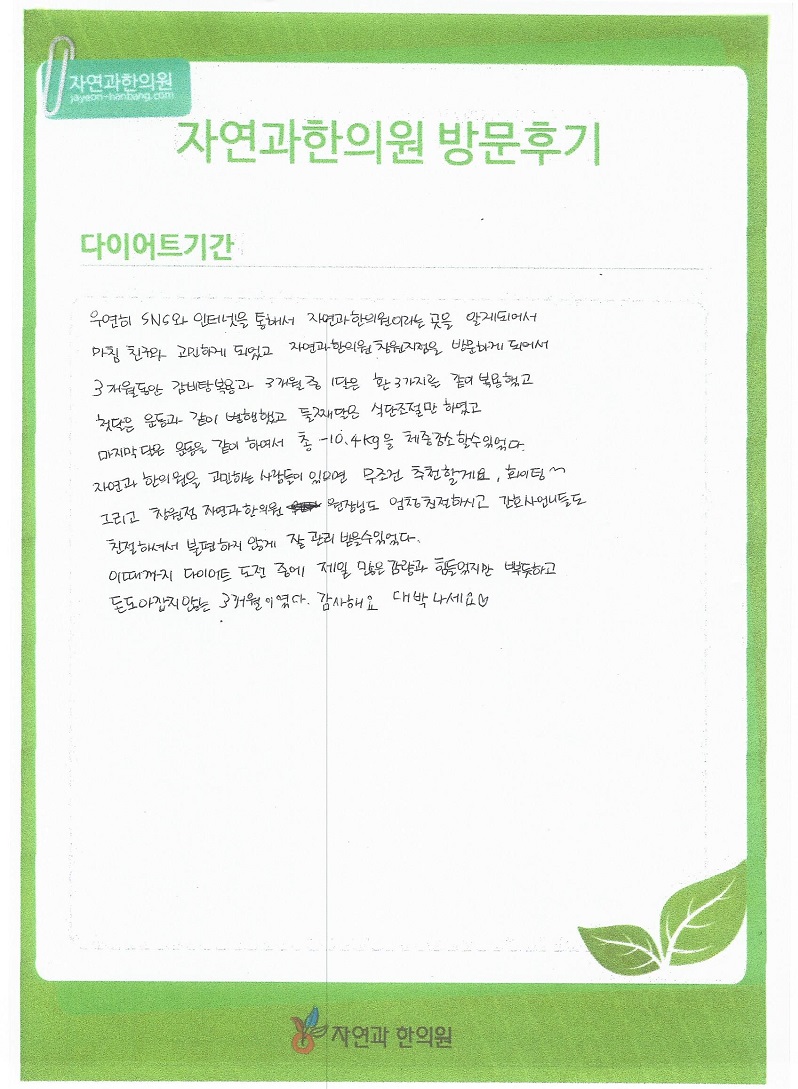 자연과한의원
jayeon-hanbang.com
자연과한의원 방문후기
다이어트기간
우연히 SNS와 인터넷을 통해서 자연과한의원이라는 곳을 알게되어서
마침 친구와 고민하게 되었고 자연과한의원 창원지점을 방문하게 되어서
3개월동안 감비탕복용과 3개월중 1달은 환 3가지를 같이 복용했고
첫달은 운동과 같이 병행했고 둘째달은 식단조절만 하였고
마지막달은 운동을 같이 하여서 총 -10.4kg을 체중감소할수있었다.
자연과 한의원을 고민하는 사람들이 있다면 무조건 추천할게요, 화이팅~
그리고 창원점 자연과한의원 원장님도 엄청친절하시고 간호사언니들도
친절하셔서 불편하지 않게 잘 관리 받을수있었다.
이때까지 다이어트 도전 중에 제일 많은감량과 힘들었지만 뿌듯하고
돈도아깝지않는 3개월이였다. 감사해요 대박나세요♡
자연과 한의원